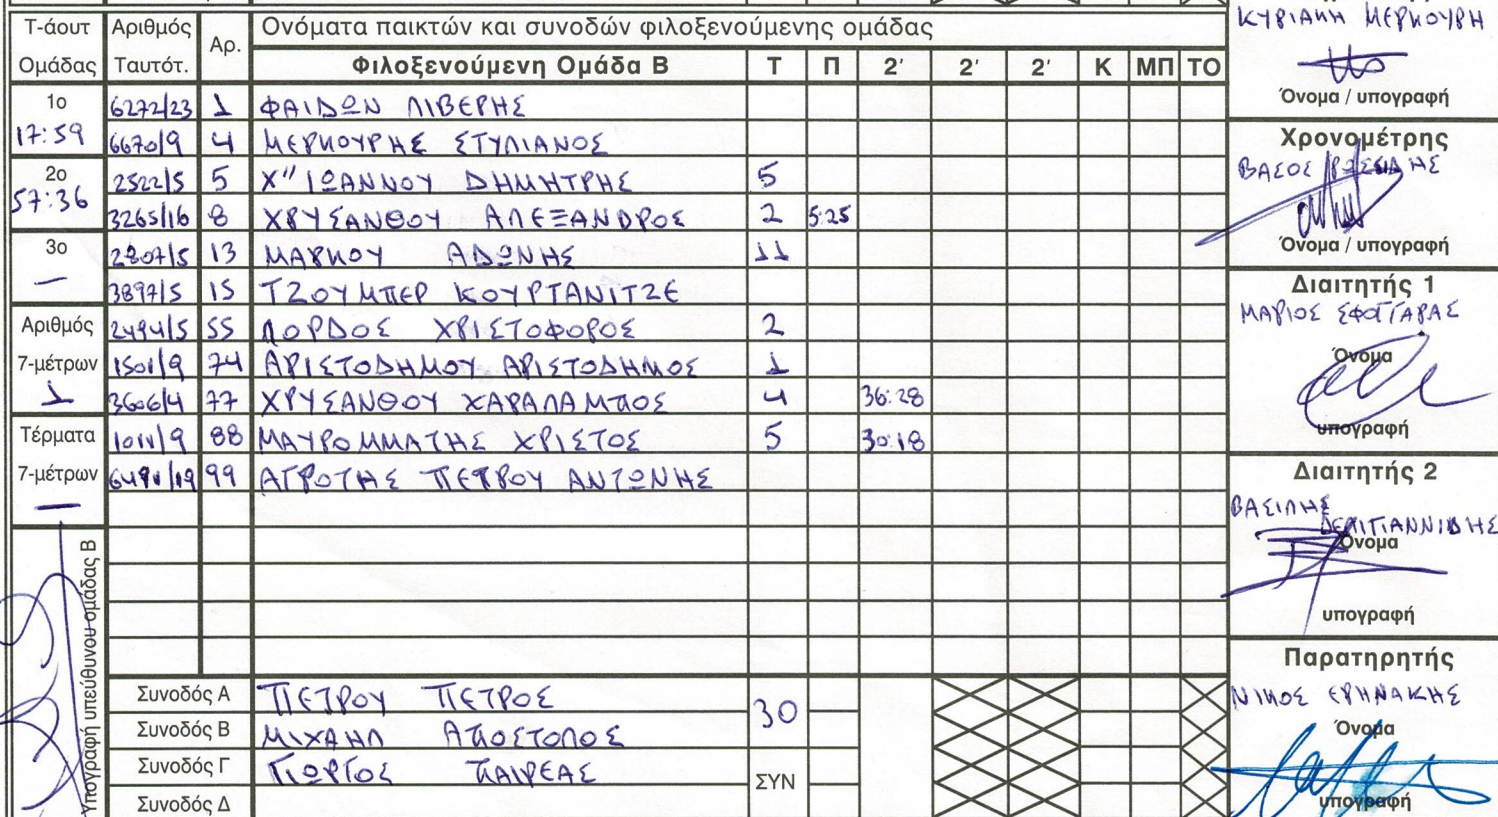 Τ-άουτ Ομάδας Αριθμός Ταυτότ. Αρ. Ονόματα παικτών και συνοδών φιλοξενούμενης ομάδας
Φιλοξενούμενη Ομάδα Β Τ Π 2' 2' 2' Κ ΜΠ ΤΟ
1ο 6272/23 1 ΦΑΙΔΩΝ ΛΙΒΕΡΗΣ
17:59 6670/9 4 ΜΕΡΚΟΥΡΗΣ ΣΤΥΛΙΑΝΟΣ
2ο 2522/5 5 Χ"ΙΩΑΝΝΟΥ ΔΗΜΗΤΡΗΣ 5
57:36 3265/16 8 ΧΡΥΣΑΝΘΟΥ ΑΛΕΞΑΝΔΡΟΣ 2 5:25
3ο 2807/5 13 ΜΑΡΚΟΥ ΑΔΩΝΗΣ 11
— 3897/5 15 ΤΖΟΥΜΠΕΡ ΚΟΥΡΤΑΝΙΤΖΕ
Αριθμός 2494/5 55 ΛΟΡΔΟΣ ΧΡΙΣΤΟΦΟΡΟΣ 2
7-μέτρων 1501/9 74 ΑΡΙΣΤΟΔΗΜΟΥ ΑΡΙΣΤΟΔΗΜΟΣ 1
1 3606/4 77 ΧΡΥΣΑΝΘΟΥ ΧΑΡΑΛΑΜΠΟΣ 4 36:28
Τέρματα 88 ΜΑΥΡΟΜΜΑΤΗΣ ΧΡΙΣΤΟΣ 5 30:18
7-μέτρων 99 ΑΓΡΟΤΗΣ ΠΕΤΡΟΥ ΑΝΤΩΝΗΣ
—
Υπογραφή υπεύθυνου ομάδας Β
Συνοδός Α ΠΕΤΡΟΥ ΠΕΤΡΟΣ 30
Συνοδός Β ΜΙΧΑΗΛ ΑΠΟΣΤΟΛΟΣ
Συνοδός Γ ΓΙΩΡΓΟΣ ΠΑΙΡΕΑΣ ΣΥΝ
Συνοδός Δ
ΚΥΡΙΑΚΗ ΜΕΡΚΟΥΡΗ
Όνομα / υπογραφή
Χρονομέτρης
ΒΑΣΟΣ
Όνομα / υπογραφή
Διαιτητής 1
ΜΑΡΙΟΣ ΣΦΟΓΓΑΡΑΣ
Όνομα
υπογραφή
Διαιτητής 2
ΒΑΣΙΛΗΣ
ΔΕΛΙΓΙΑΝΝΙΔΗΣ
Όνομα
υπογραφή
Παρατηρητής
ΝΙΚΟΣ ΕΡΗΝΑΚΗΣ
Όνομα
υπογραφή